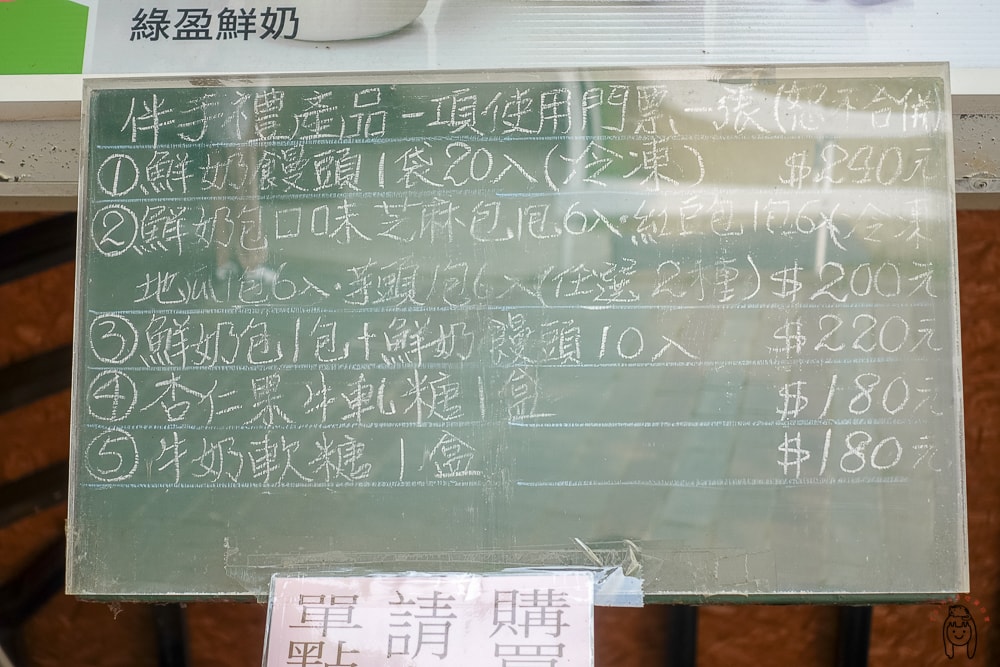 綠盈鮮奶
伴手禮產品一項使用門票一張(恕不合併)
①鮮奶饅頭1袋20入(冷凍) $240元
②鮮奶包口味芝麻包1包6入.紅豆包1包6入冷凍
地瓜1包6入.芋頭1包6入(任選2種) $200元
③鮮奶包1包+鮮奶饅頭10入 $220元
④杏仁果牛軋糖1盒 $180元
⑤牛奶軟糖1盒 $180元
單點 請 購買